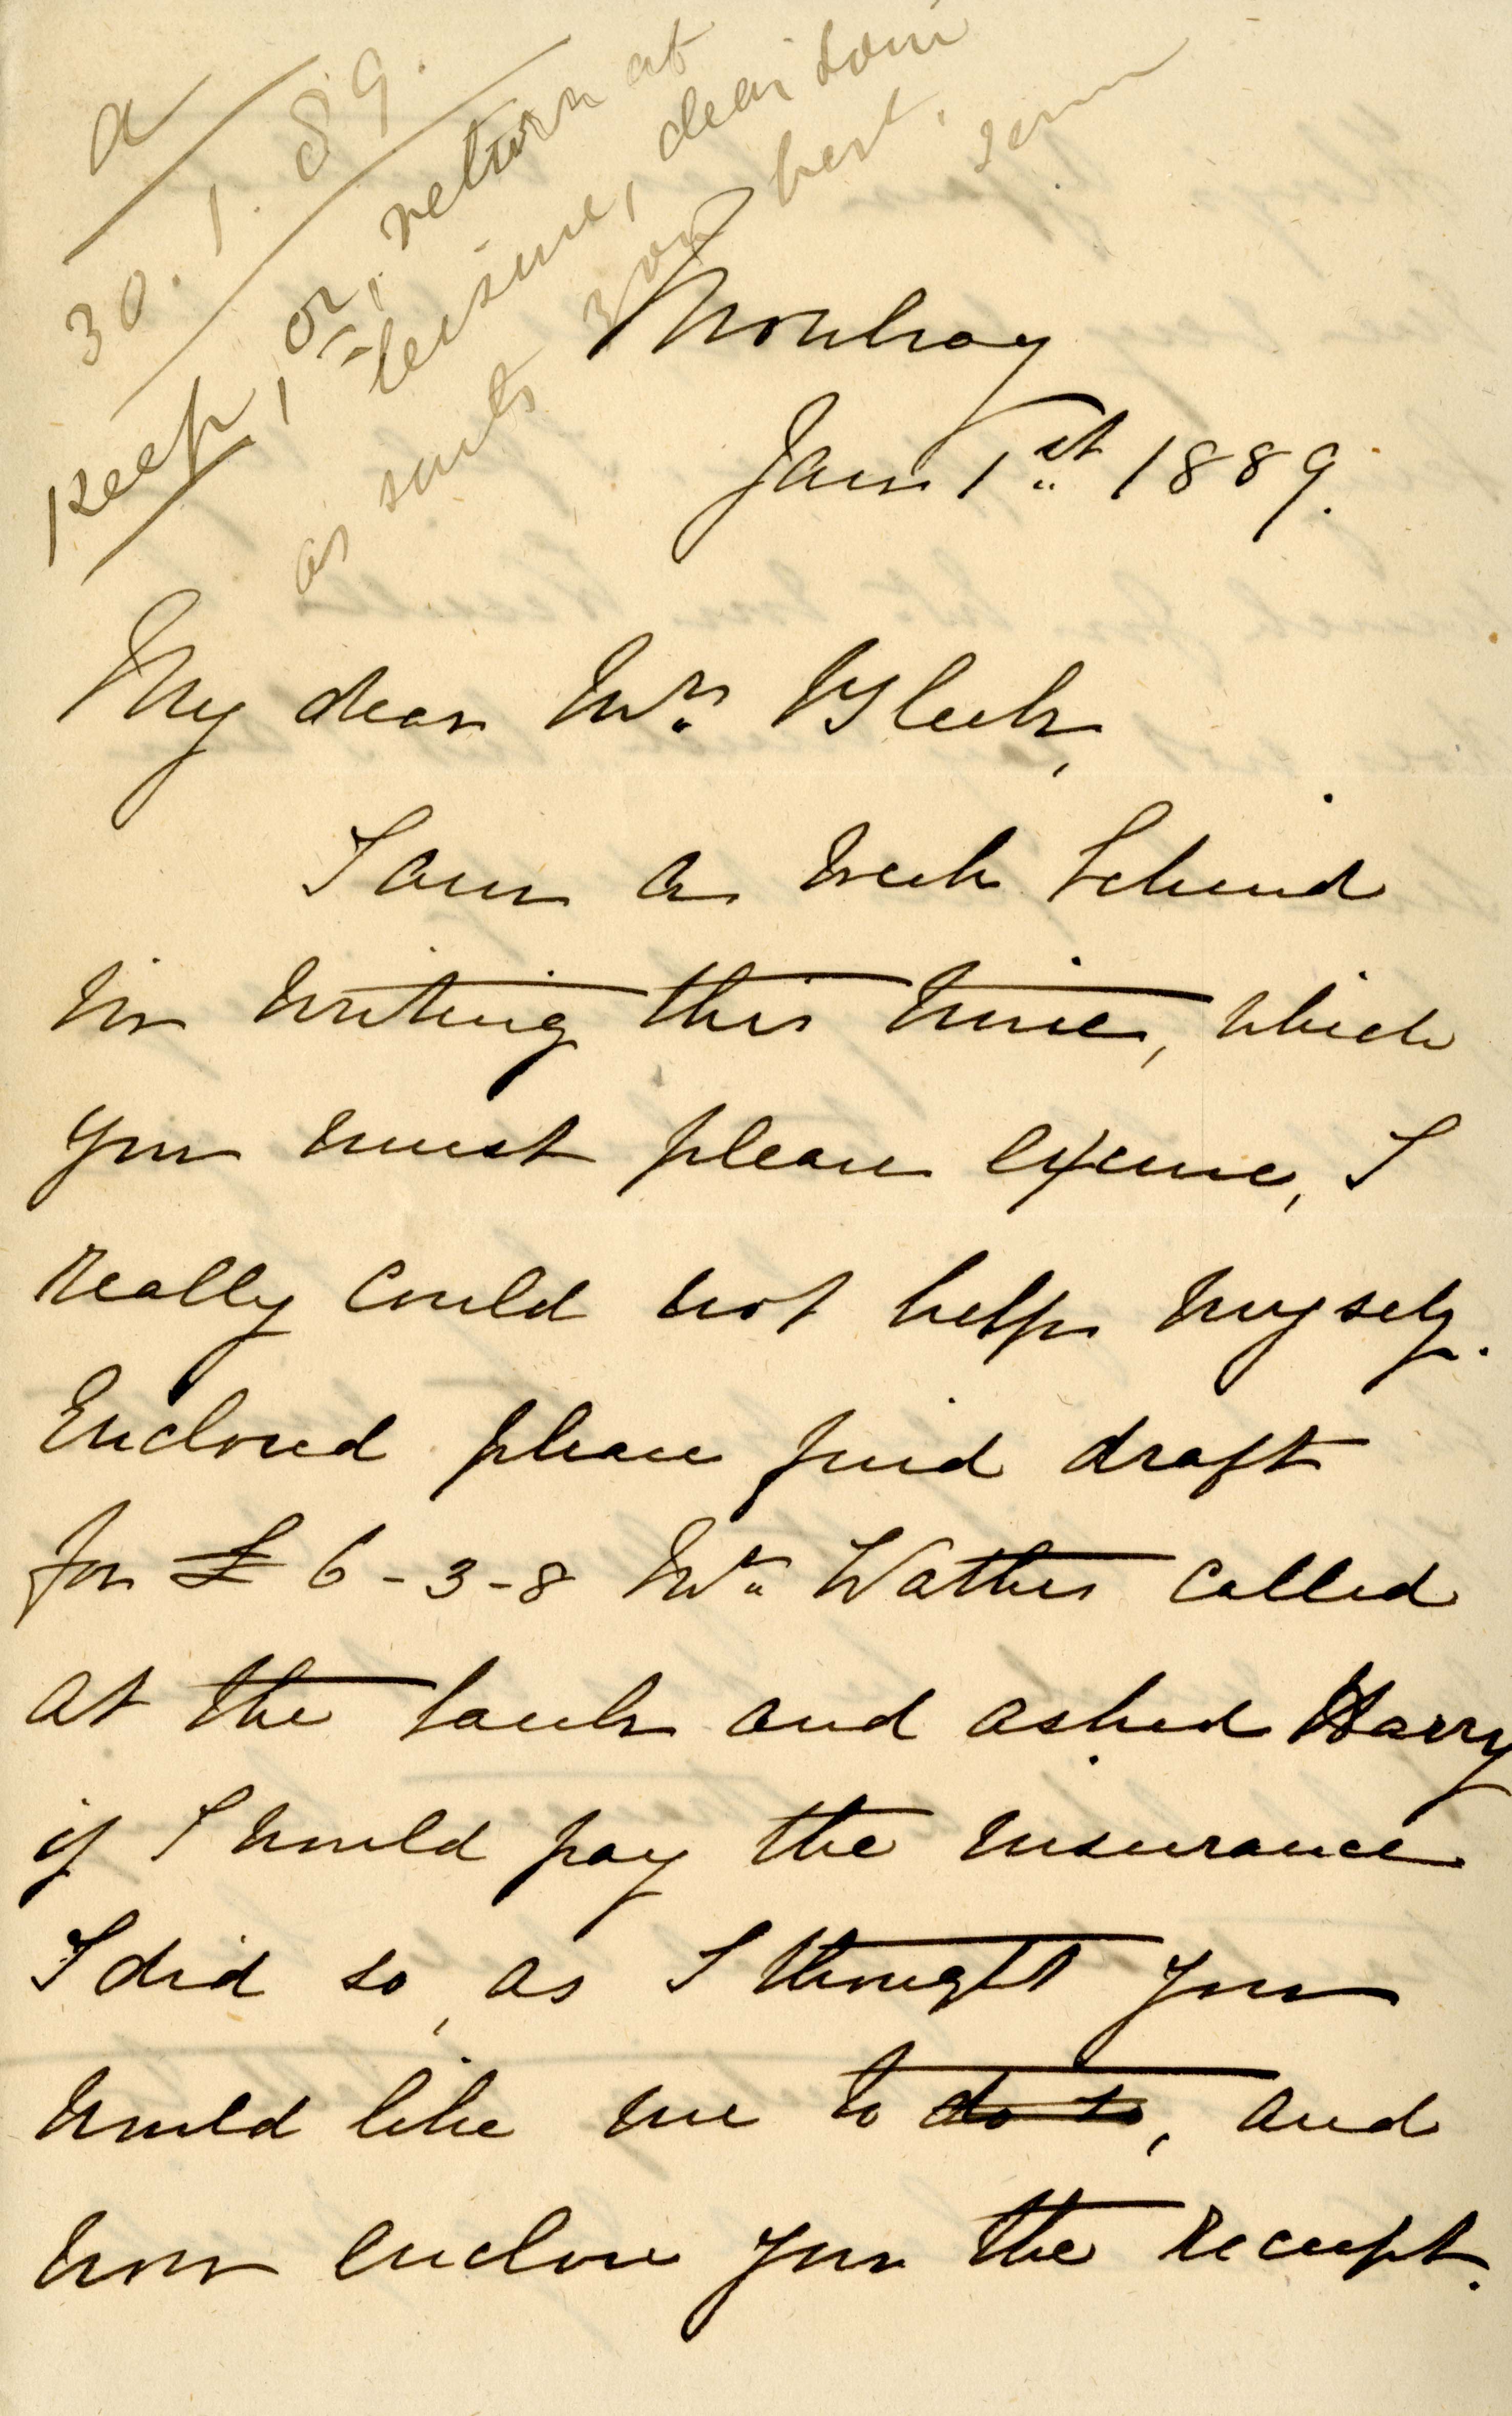 a
30. 1. 89.
Keep, or, return at
leisure, dear
as suits you best.
Mowbray
Jan 1st 1889.
My dear Mrs Bleek,
I am a week behind
in writing this time, which
you must please excuse, I
really could not help myself.
Enclosed please find draft
for £ 6-3-8 Mr Wathes called
at the bank and asked Harry
if I would pay the insurance
I did so, as I thought you
would like me to do so, and
now enclose you the receipt.